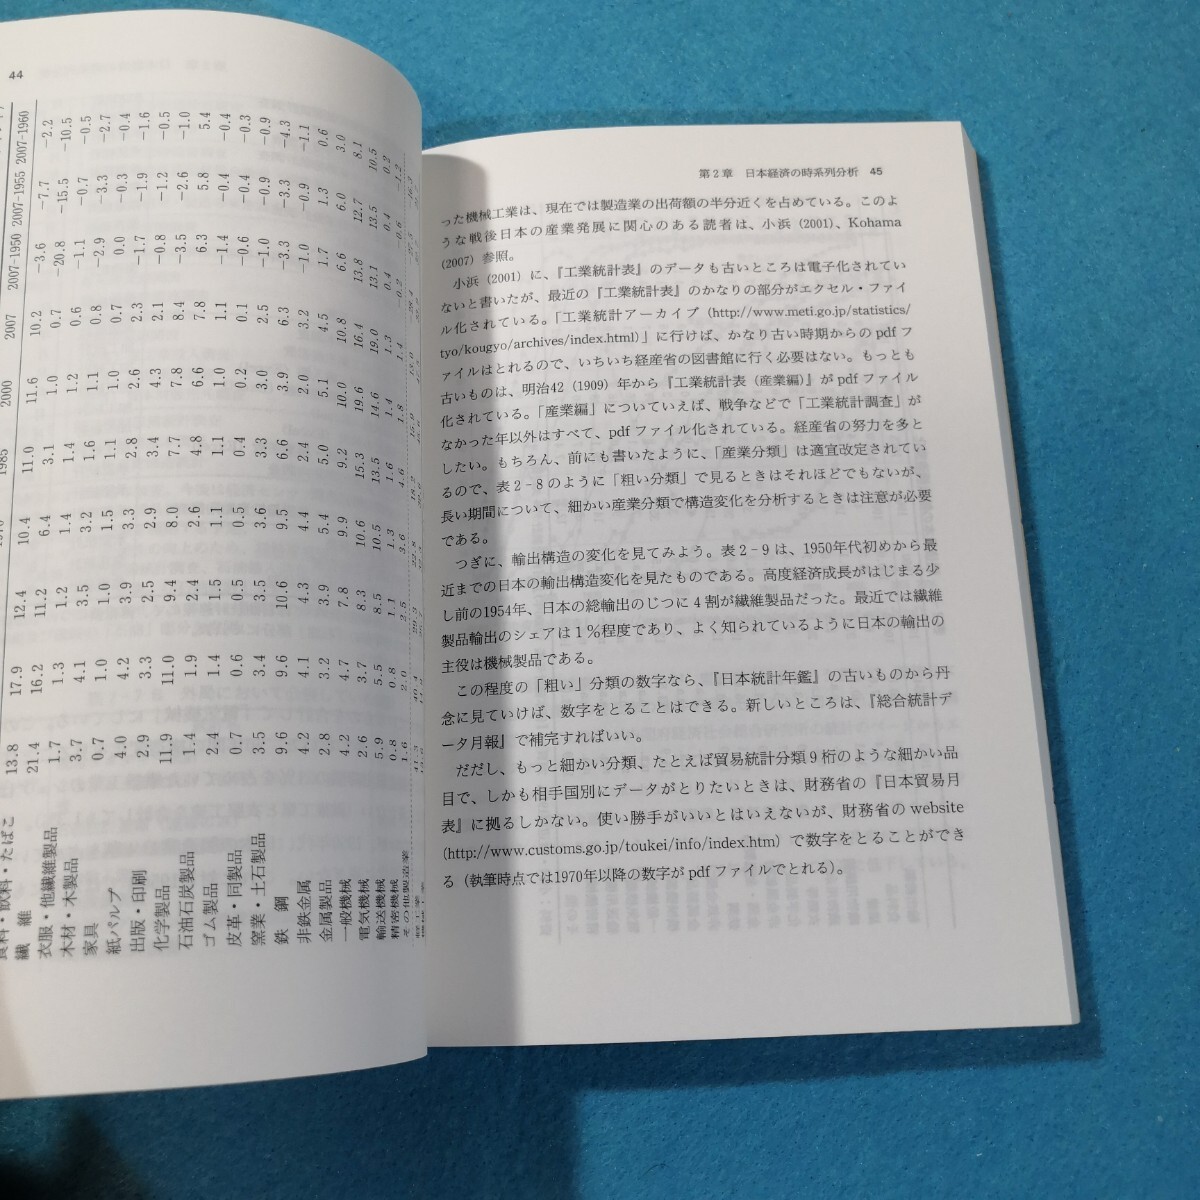 44
1985 2000 2007 2007-1950 2007-1955 2007-1960
食料・飲料・たばこ 13.8 17.9 12.4 10.4 11.0 11.6 10.2 −3.6 −7.7 −2.2
繊 維 21.4 16.2 11.2 6.4 3.1 1.0 0.7 −20.8 −15.5 −10.5
衣服・他繊維製品 1.7 1.3 1.2 1.4 1.4 1.2 0.6 −1.1 −0.7 −0.5
木材・木製品 3.7 4.1 3.5 3.2 1.6 1.1 0.8 −2.9 −3.3 −2.7
家具 0.7 1.0 1.0 1.5 1.1 1.0 0.7 0.0 −0.3 −0.4
紙パルプ 4.0 4.2 3.9 3.3 2.8 2.6 2.3 −1.7 −1.9 −1.6
出版・印刷 2.9 3.3 2.5 2.9 3.4 4.3 2.1 −0.8 −1.2 −0.5
化学製品 11.9 11.0 9.4 8.0 7.7 7.8 8.4 −3.5 −2.6 −1.0
石油石炭製品 1.4 1.9 2.4 2.6 4.8 6.6 7.8 6.3 5.8 5.4
ゴム製品 2.4 1.4 1.5 1.1 1.1 1.0 1.1 −1.4 −0.4 −0.4
皮革・同製品 0.7 0.6 0.5 0.5 0.4 0.2 0.1 −0.6 −0.4 −0.3
窯業・土石製品 3.5 3.4 3.5 3.6 3.3 3.0 2.5 −1.0 −0.9 −0.9
鉄 鋼 9.6 9.6 10.6 9.5 6.6 3.9 6.3 −3.3 −3.3 −4.3
非鉄金属 4.2 4.1 4.3 4.4 2.4 2.0 3.2 −1.0 −0.9 −1.1
金属製品 2.8 3.2 3.9 5.4 5.0 5.1 4.5 1.7 1.3 0.6
一般機械 4.2 4.7 7.8 9.9 9.2 10.0 10.8 6.6 6.0 3.0
電気機械 2.6 3.7 8.3 10.6 15.3 19.6 16.4 13.8 12.7 8.1
輸送機械 5.9 5.5 8.5 10.5 13.5 14.6 19.0 13.1 13.5 10.5
精密機械 0.8 0.8 1.1 1.3 1.6 1.4 1.3 0.4 0.4 0.2
その他製造業 1.6 2.0 2.5 3.6 4.6 1.8 1.4 −0.2 −0.6 −1.2
第2章 日本経済の時系列分析 45
った機械工業は、現在では製造業の出荷額の半分近くを占めている。このよ
うな戦後日本の産業発展に関心のある読者は、小浜（2001）、Kohama
（2007）参照。
小浜（2001）に、『工業統計表』のデータも古いところは電子化されてい
ないと書いたが、最近の『工業統計表』のかなりの部分がエクセル・ファイ
ル化されている。「工業統計アーカイブ（http://www.meti.go.jp/statistics/
tyo/kougyo/archives/index.html）」に行けば、かなり古い時期からの pdf フ
ァイルはとれるので、いちいち経産省の図書館に行く必要はない。もっとも
古いものは、明治42（1909）年から『工業統計表（産業編）』が pdf ファイル
化されている。「産業編」についていえば、戦争などで「工業統計調査」が
なかった年以外はすべて、pdf ファイル化されている。経産省の努力を多と
したい。もちろん、前にも書いたように、「産業分類」は適宜改定されてい
るので、表2-8のように「粗い分類」で見るときはそれほどでもないが、
長い期間について、細かい産業分類で構造変化を分析するときは注意が必要
である。
つぎに、輸出構造の変化を見てみよう。表2-9は、1950年代初めから最
近までの日本の輸出構造変化を見たものである。高度経済成長がはじまる少
し前の1954年、日本の総輸出のじつに4割が繊維製品だった。最近では繊維
製品輸出のシェアは1％程度であり、よく知られているように日本の輸出の
主役は機械製品である。
この程度の「粗い」分類の数字なら、『日本統計年鑑』の古いものから丹
念に見ていけば、数字をとることはできる。新しいところは、『総合統計デ
ータ月報』で補完すればいい。
だだし、もっと細かい分類、たとえば貿易統計分類9桁のような細かい品
目で、しかも相手国別にデータがとりたいときは、財務省の『日本貿易月
表』に拠るしかない。使い勝手がいいとはいえないが、財務省の website
（http://www.customs.go.jp/toukei/info/index.htm）で数字をとることができ
る（執筆時点では1970年以降の数字が pdf ファイルでとれる）。